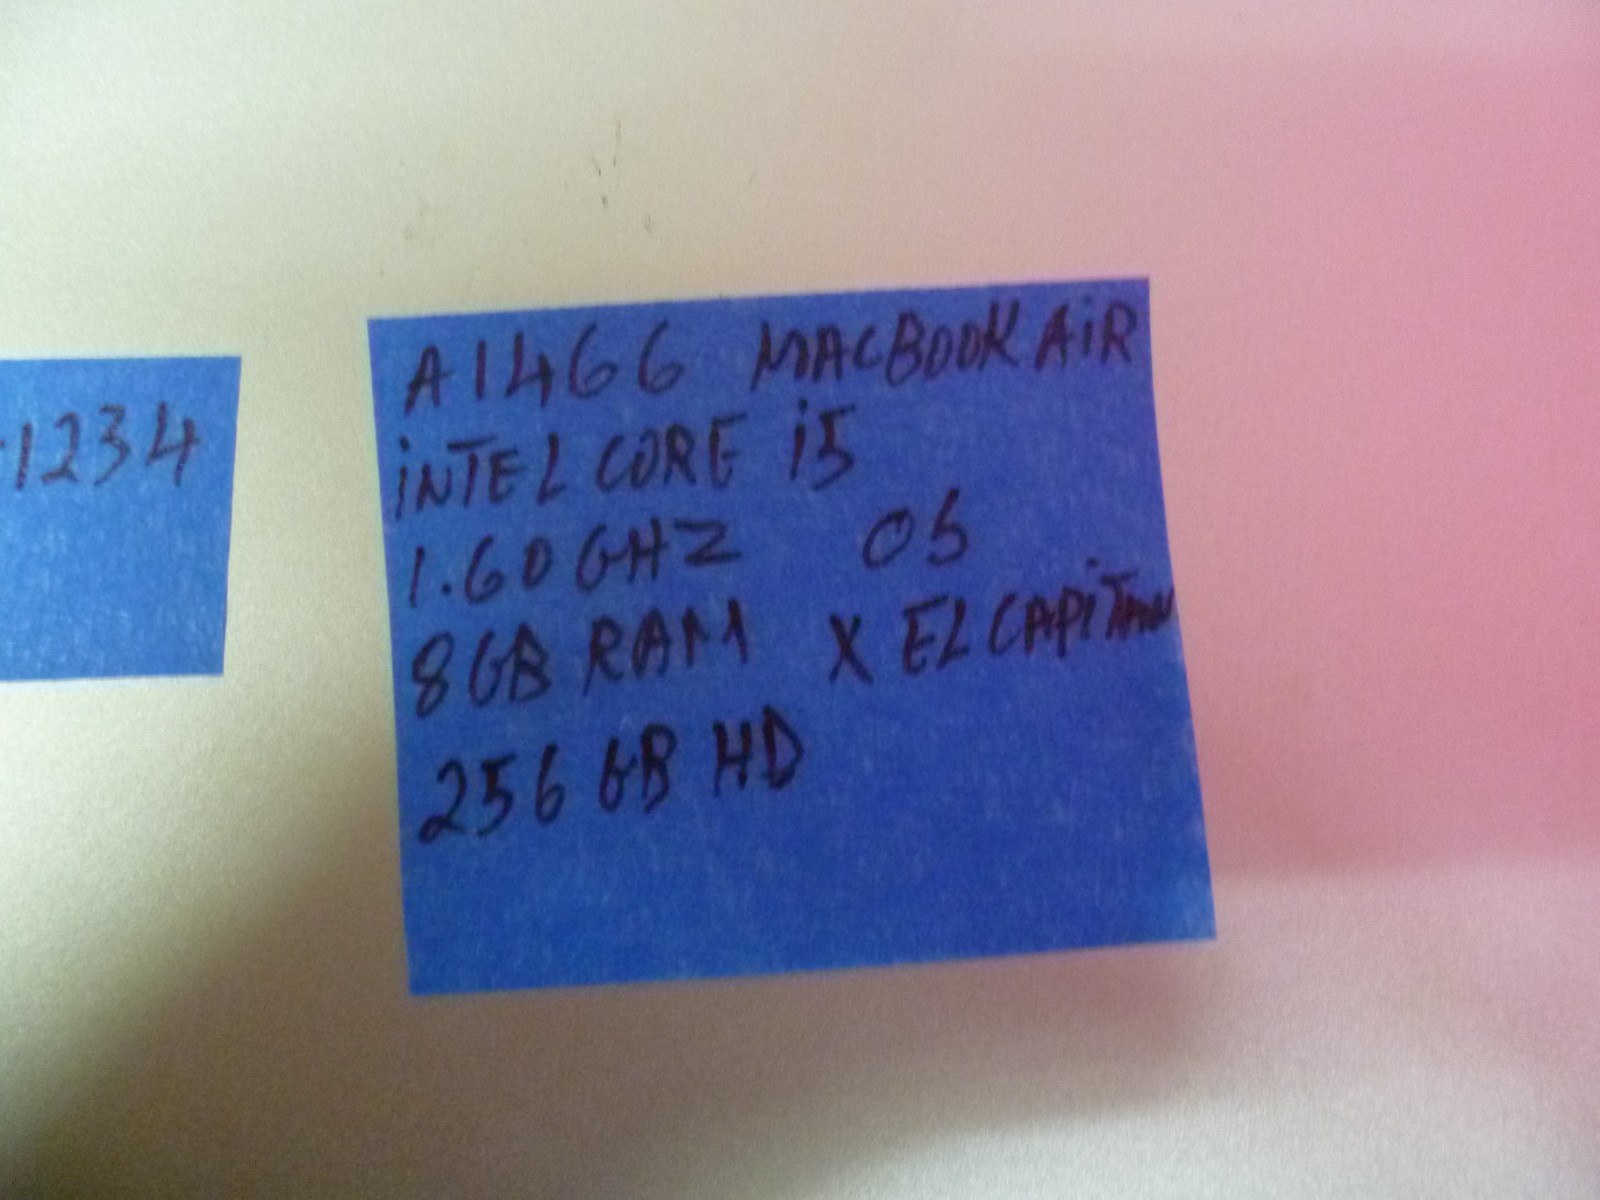 1234
A1466 MACBOOK AiR
iNTEL CORE i5
1.60 GHZ OS
8GB RAM X EL CAPiTAN
256 GB HD